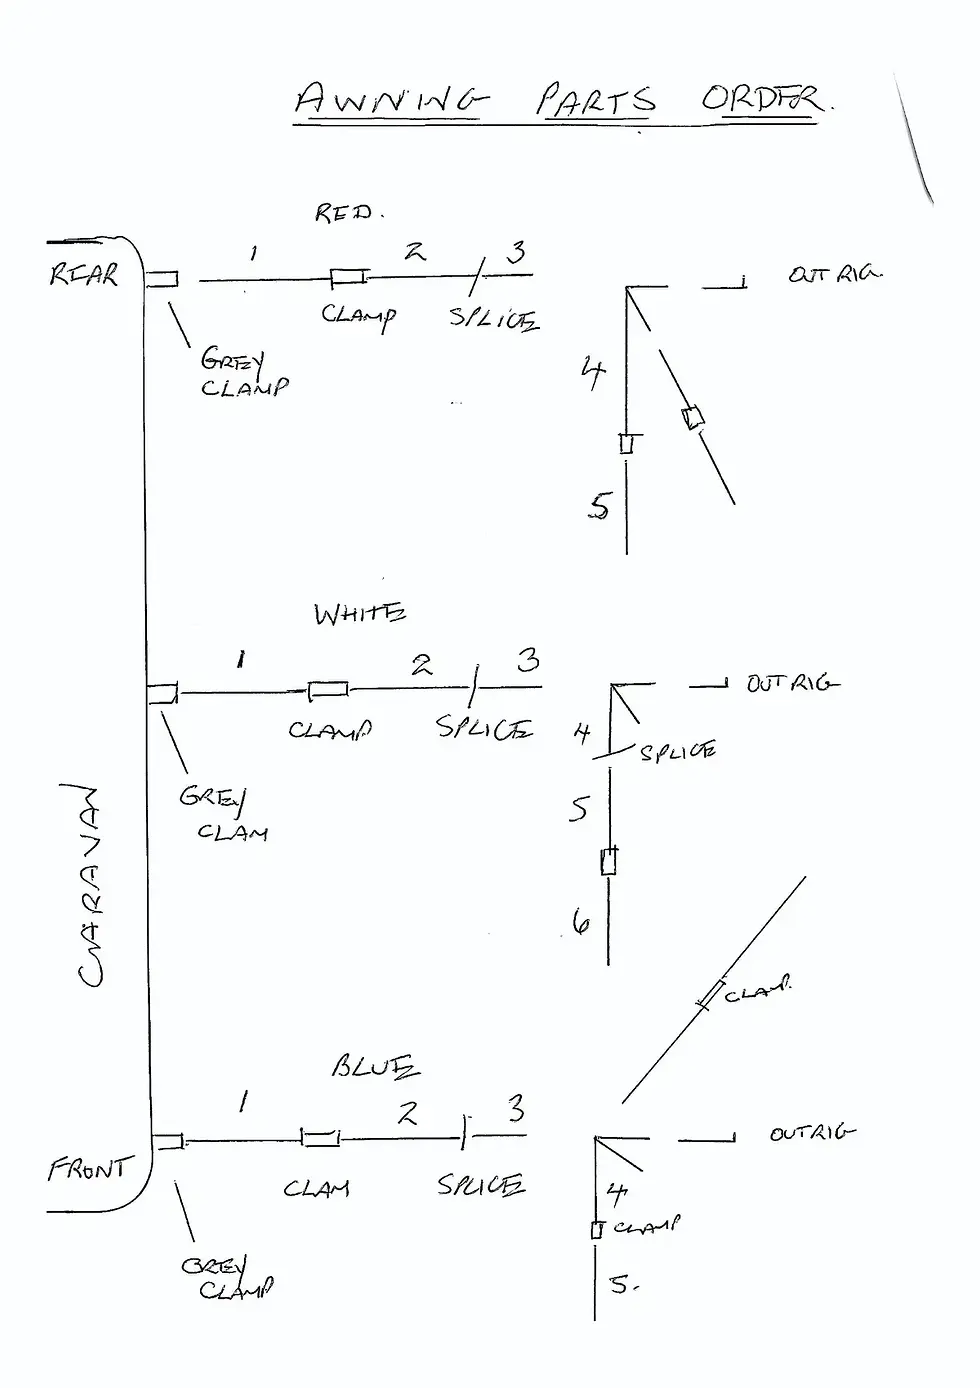 AWNING PARTS ORDER.
RED.
REAR
1
2
3
OUT RIG.
CLAMP
SPLICE
GREY
CLAMP
4
5
WHITE
1
2
3
OUT RIG
CLAMP
SPLICE
4
SPLICE
GREY
CLAM
5
CARAVAN
6
CLAMP.
BLUE
1
2
3
OUTRIG
FRONT
CLAM
SPLICE
4
CLAMP
GREY
CLAMP
5.